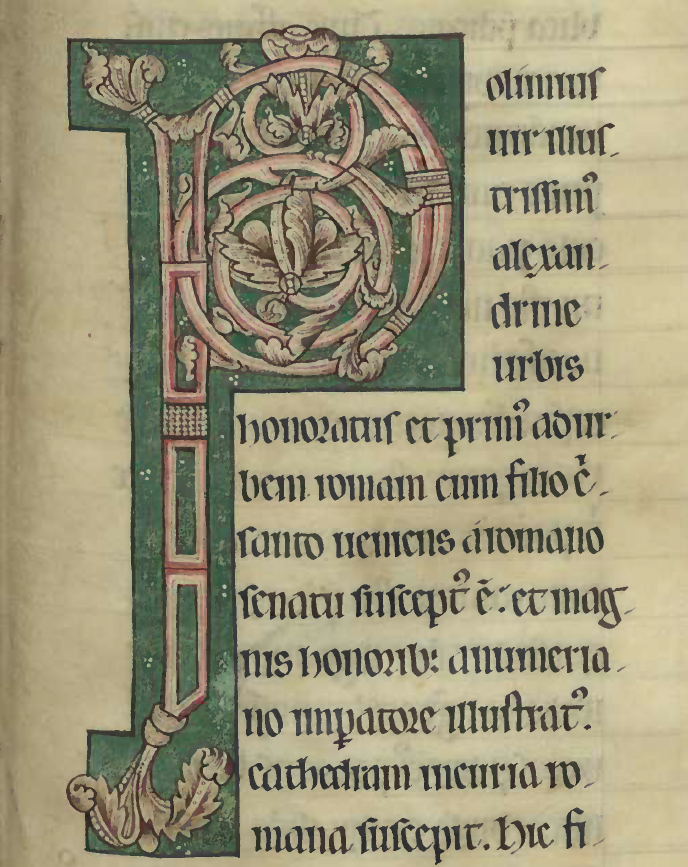 Polimius
uir illus-
trissim᷒
alęxan-
drine
urbis
honoratus et prim᷒ ad ur-
bem romam cum filio c̄ri-
santo ueniens á romano
senatu suscept᷒ ē: et mag-
nis honorib: a numeria-
no imꝑatore illustrat᷒.
cathedram in curia ro-
mana suscepit. Hic fi-